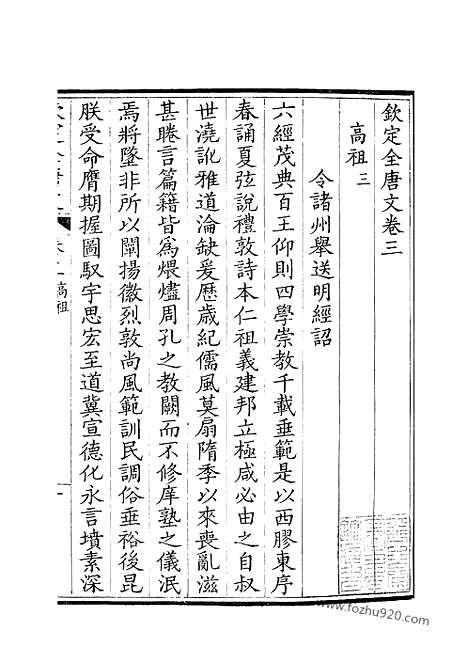 欽定全唐文卷三
高祖三
令諸州舉送明經詔
六經茂典百王仰則四學崇教千載垂範是以西膠東序
春誦夏弦說禮敦詩本仁祖義建邦立極咸必由之自叔
世澆訛雅道淪缺爰歷歲紀儒風莫扇隋季以來喪亂滋
甚睠言篇籍皆為煨燼周孔之教闕而不修庠塾之儀泯
焉將墜非所以闡揚徽烈敦尚風範訓民調俗垂裕後昆
朕受命膺期握圖馭宇思宏至道冀宣德化永言墳素深
高祖
www.fozhu920.com